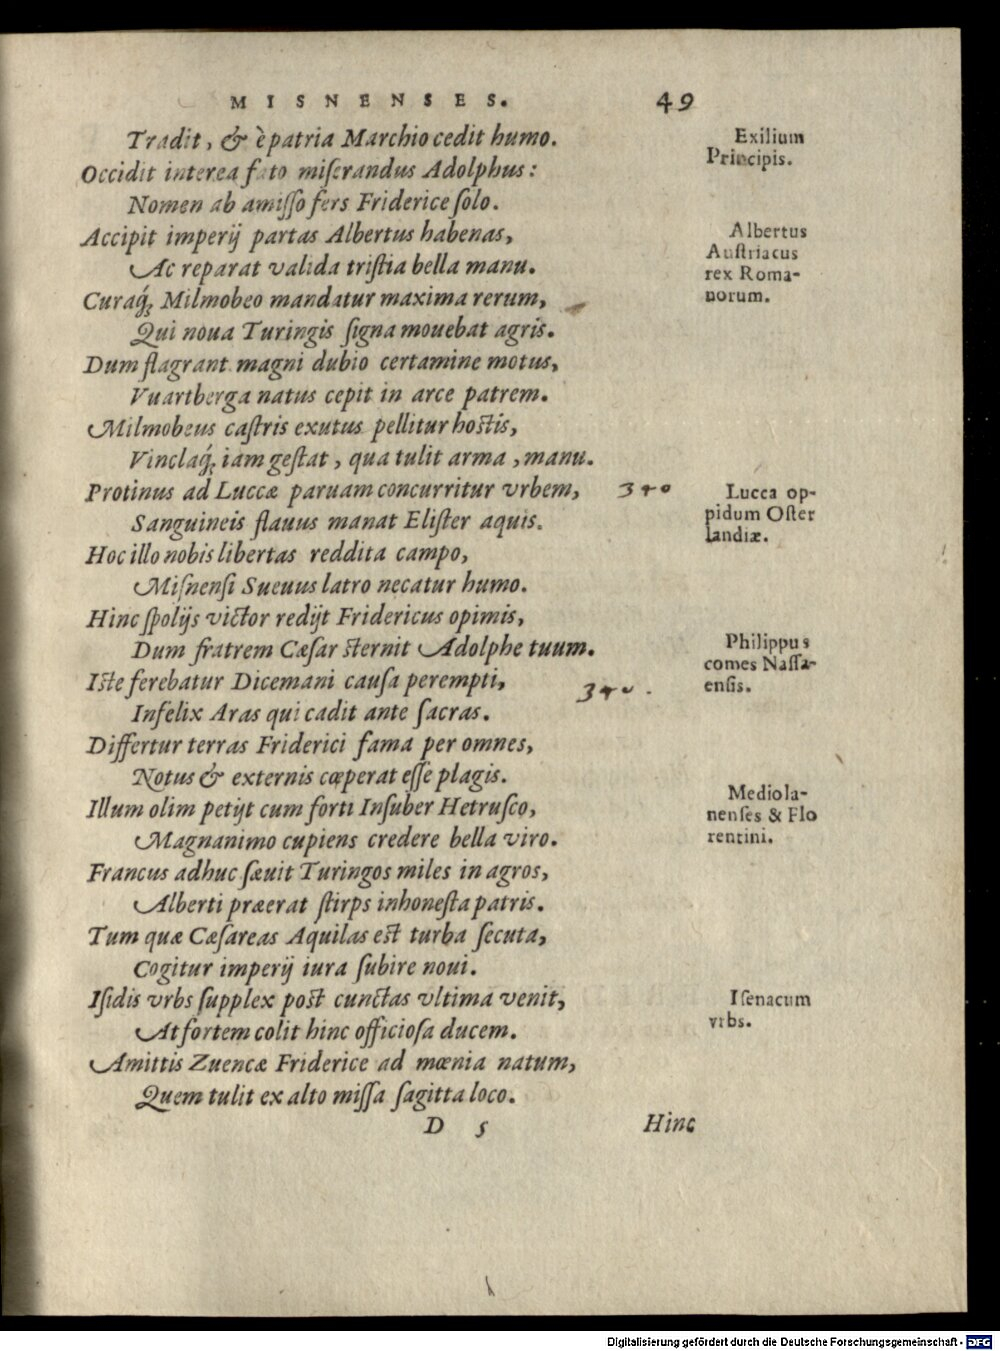 MISNENSES. 49
Tradit, & è patria Marchio cedit humo.
Exilium
Principis.
Occidit interea fato miſerandus Adolphus:
Nomen ab amiſſo fers Friderice ſolo.
Accipit imperij partas Albertus habenas,
Albertus
Auſtriacus
rex Roma-
norum.
Ac reparat valida triſtia bella manu.
Curaq́ꝫ Milmobeo mandatur maxima rerum,
Qui noua Turingis ſigna mouebat agris.
Dum flagrant magni dubio certamine motus,
Vuartberga natus cepit in arce patrem.
Milmobeus caſtris exutus pellitur hoſtis,
Vinclaq́ꝫ iam geſtat, qua tulit arma, manu.
Protinus ad Luccæ paruam concurritur vrbem,
340
Lucca op-
pidum Oſter
landiæ.
Sanguineis flauus manat Eliſter aquis.
Hoc illo nobis libertas reddita campo,
Miſnenſi Sueuus latro necatur humo.
Hinc ſpolijs victor redijt Fridericus opimis,
Dum fratrem Cæſar ſternit Adolphe tuum.
Philippus
comes Naſſa-
enſis.
Iſte ferebatur Dicemani cauſa perempti,
340.
Infelix Aras qui cadit ante ſacras.
Differtur terras Friderici fama per omnes,
Notus & externis cœperat eſſe plagis.
Illum olim petijt cum forti Inſuber Hetruſco,
Mediola-
nenſes & Flo
rentini.
Magnanimo cupiens credere bella viro.
Francus adhuc ſæuit Turingos miles in agros,
Alberti præerat ſtirps inhoneſta patris.
Tum quæ Cæſareas Aquilas eſt turba ſecuta,
Cogitur imperij iura ſubire noui.
Iſidis vrbs ſupplex poſt cunctas vltima venit,
Iſenacum
vrbs.
At fortem colit hinc officioſa ducem.
Amittis Zuencæ Friderice ad mœnia natum,
Quem tulit ex alto miſſa ſagitta loco.
D 5 Hinc
Digitalisierung gefördert durch die Deutsche Forschungsgemeinschaft - DFG